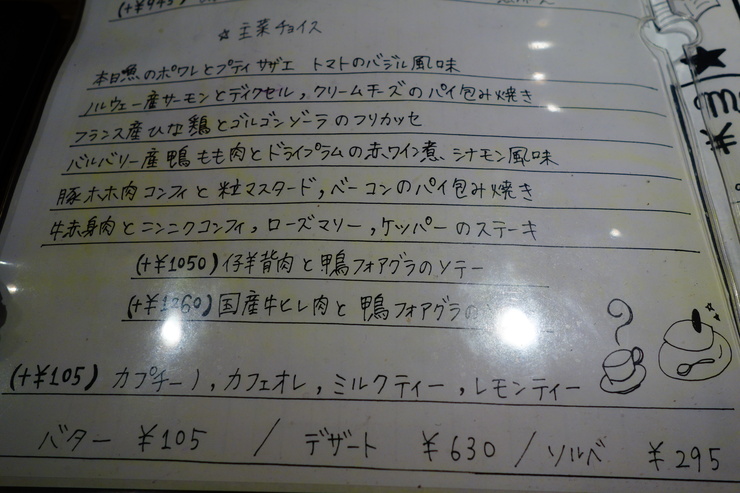 (+¥945)
☆主菜チョイス
本日魚のポワレとプティサザエ トマトのバジル風味
ノルウェー産サーモンとディクセル,クリームチーズのパイ包み焼き
フランス産ひな鶏とゴルゴンゾーラのフリカッセ
バルバリー産鴨もも肉とドライプラムの赤ワイン煮、シナモン風味
豚ホホ肉コンフィと粒マスタード,ベーコンのパイ包み焼き
牛赤身肉とニンニクコンフィ,ローズマリー,ケッパーのステーキ
(+¥1050)仔羊背肉と鴨フォアグラのソテー
(+¥1260)国産牛ヒレ肉と鴨フォアグラの
(+¥105)カプチーノ,カフェオレ,ミルクティー,レモンティー
バター ¥105 / デザート ¥630 / ソルベ ¥295